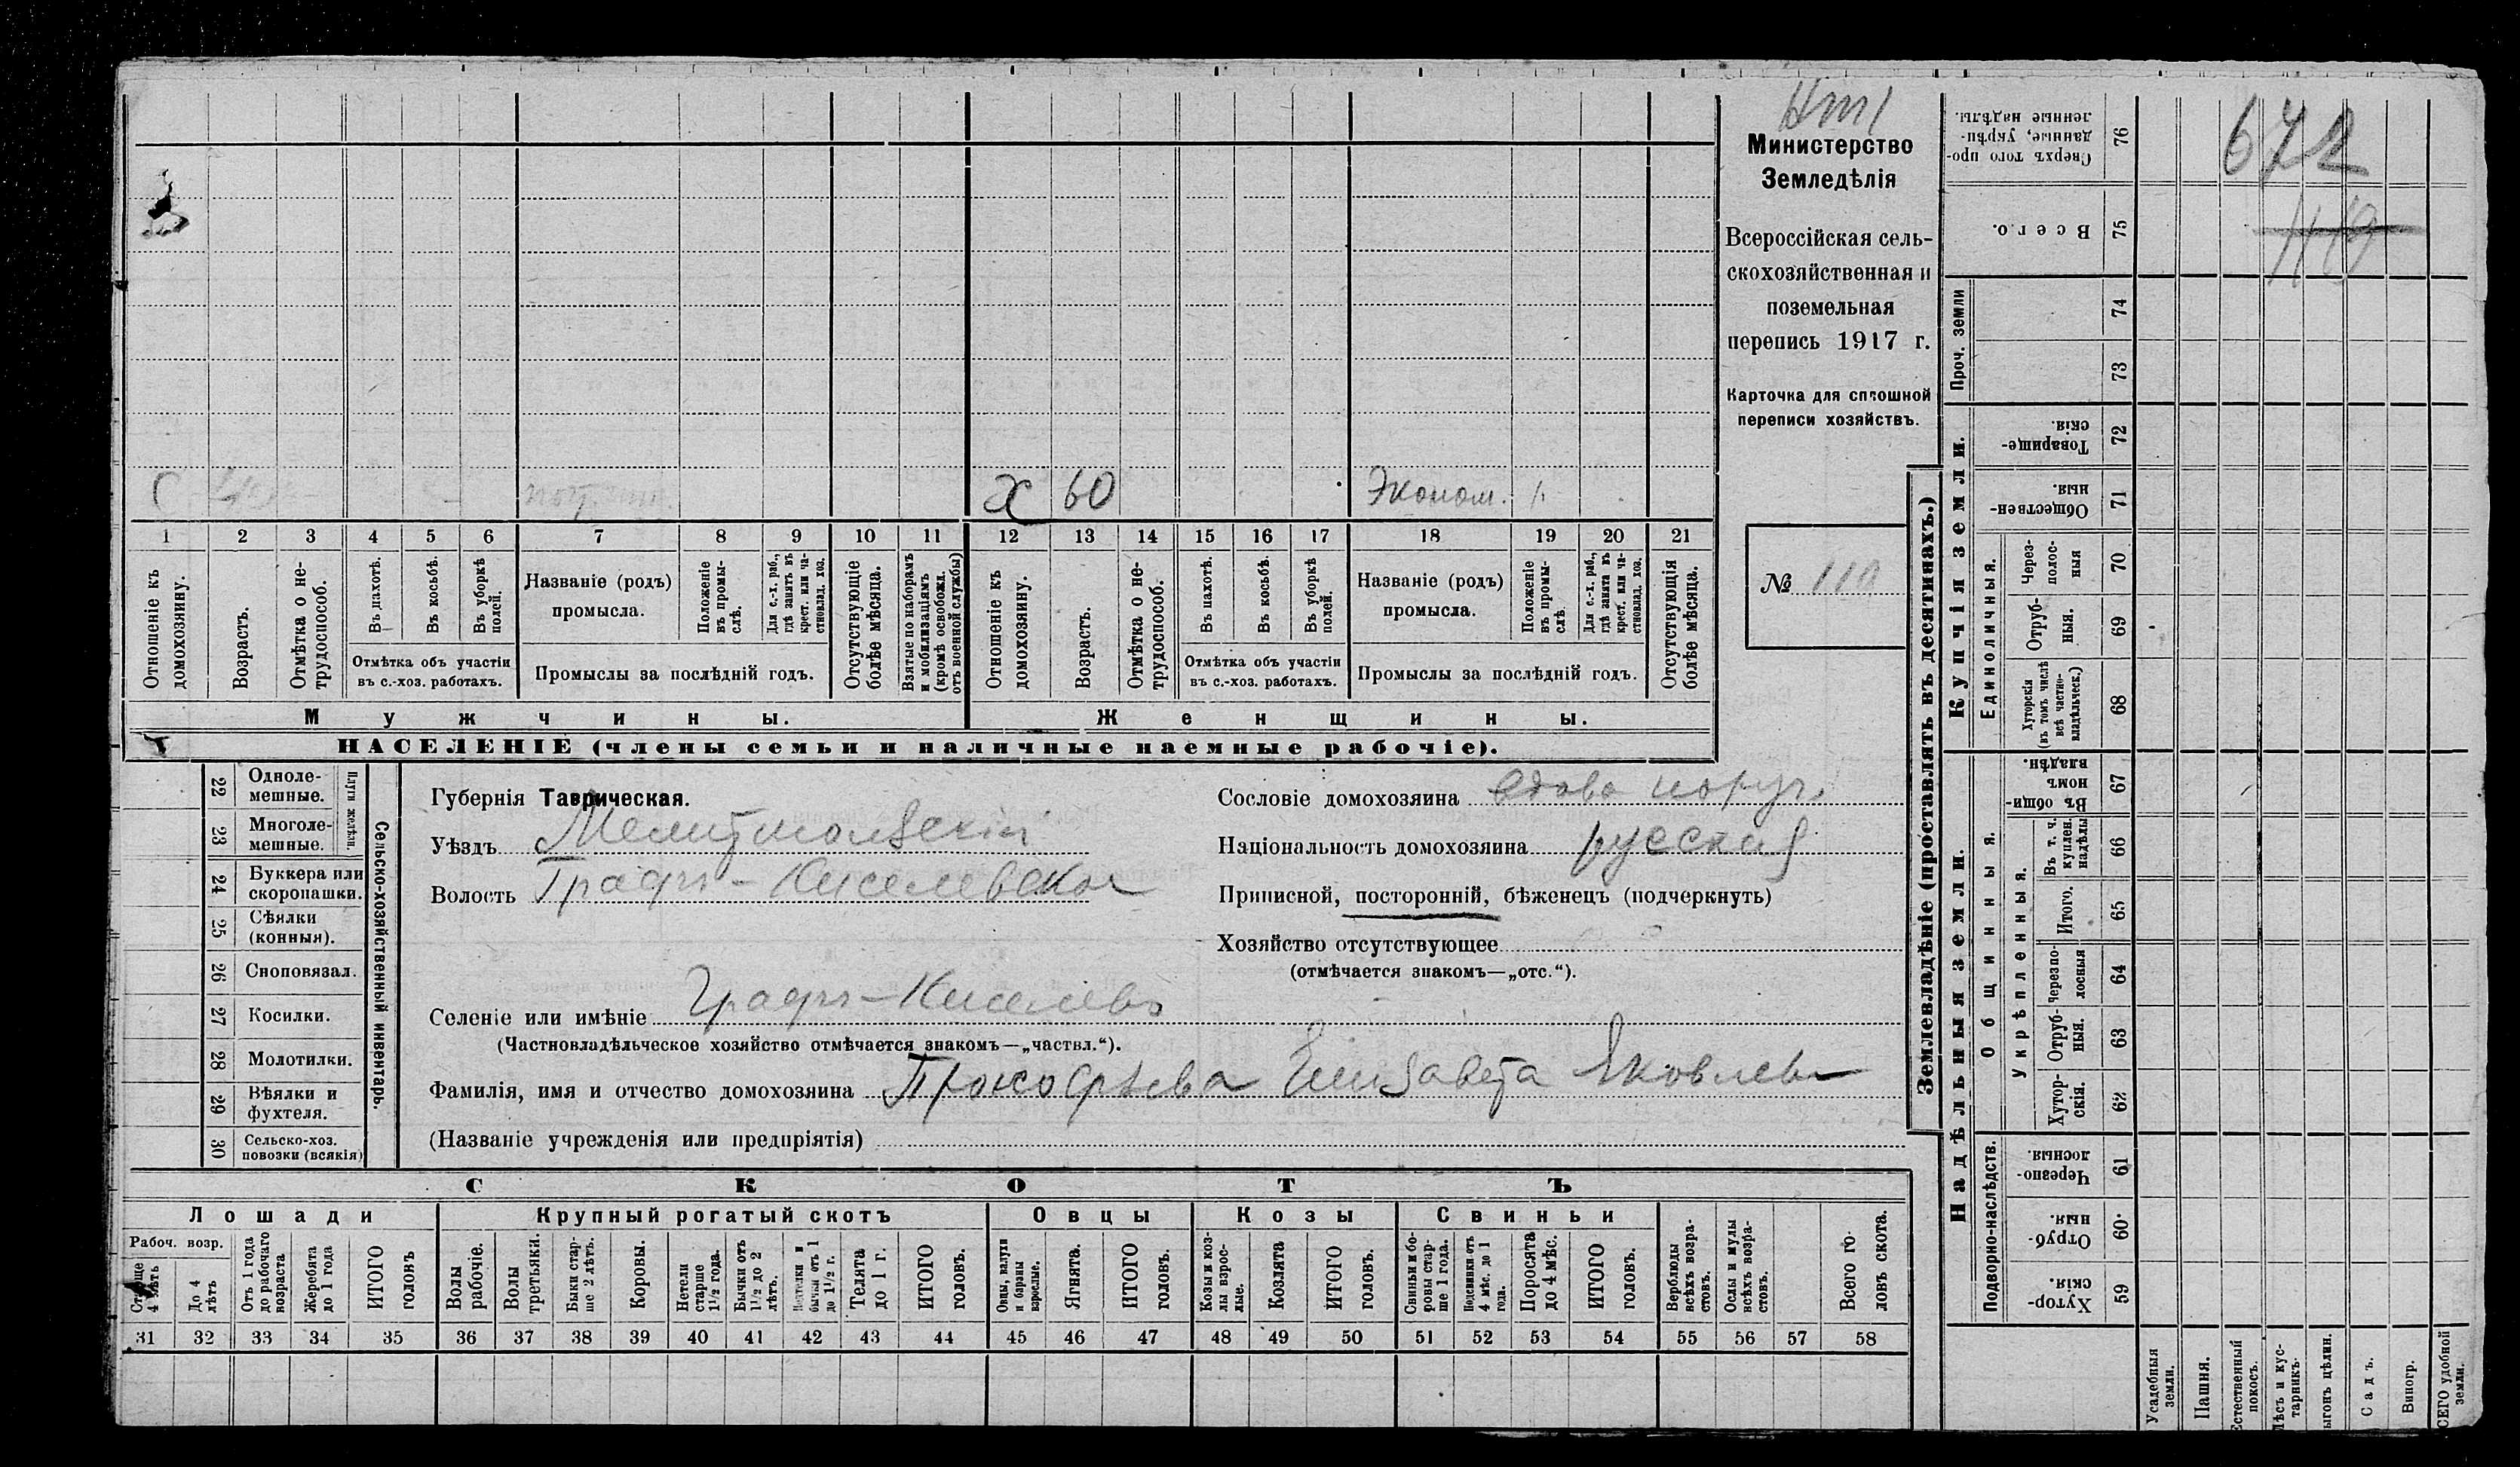 672
Министерство
Земледѣлія
Всероссійская сель-
скохозяйственная и
поземельная
перепись 1917 г.
Карточка для сплошной
переписи хозяйствъ.
№ 110
х 60 Эконом. 1.
1 2 3 4 5 6 7 8 9 10 11 12 13 14 15 16 17 18 19 20 21
Отношеніе къ домохозяину.
Возрастъ.
Отмѣтка о не-трудоспособ.
Въ пахотѣ.
Въ косьбѣ.
Въ уборкѣ полей.
Отмѣтка объ участіи
въ с.-хоз. работахъ.
Названіе (родъ)
промысла.
Положеніе въ промы-слѣ.
Для с.-х. раб., гдѣ занятъ въ крест. или ча-стновлад. хоз.
Промыслы за послѣдній годъ.
Отсутствующіе болѣе мѣсяца.
Взятые по наборамъ и мобилизаціямъ (кромѣ освобожд. отъ военной службы)
Отношеніе къ домохозяину.
Возрастъ.
Отмѣтка о не-трудоспособ.
Въ пахотѣ.
Въ косьбѣ.
Въ уборкѣ полей.
Отмѣтка объ участіи
въ с.-хоз. работахъ.
Названіе (родъ)
промысла.
Положеніе въ промы-слѣ.
Для с.-х. раб., гдѣ занята въ крест. или ча-стновлад. хоз.
Промыслы за послѣдній годъ.
Отсутствующія болѣе мѣсяца.
Мужчины.
Женщины.
НАСЕЛЕНІЕ (члены семьи и наличные наемные рабочіе).
22 Одноле-мешные.
23 Многоле-мешные.
Плуги желѣзн.
24 Буккера или скоропашки.
25 Сѣялки (конныя).
26 Сноповязал.
27 Косилки.
28 Молотилки.
29 Вѣялки и фухтеля.
30 Сельско-хоз. повозки (всякія)
Сельско-хозяйственный инвентарь.
Губернія Таврическая.
Уѣздъ Мелитопольскій
Волость Графъ-Киселевская
Селеніе или имѣніе Графъ-Киселевъ
(Частновладѣльческое хозяйство отмѣчается знакомъ—„частвл.“).
Фамилія, имя и отчество домохозяина Прокофьева Елизавета Яковлев
(Названіе учрежденія или предпріятія)
Сословіе домохозяина вдова поруч.
Національность домохозяина русская
Приписной, посторонній, бѣженецъ (подчеркнуть)
Хозяйство отсутствующее
(отмѣчается знакомъ—„отс.“).
СКОТЪ
Лошади
Крупный рогатый скотъ
Овцы
Козы
Свиньи
Рабоч. возр.
Старше 4 лѣтъ
До 4 лѣтъ
Отъ 1 года до рабочаго возраста
Жеребята до 1 года
ИТОГО головъ
Волы рабочіе.
Волы третьяки.
Быки стар-ше 2 лѣтъ.
Коровы.
Нетели старше 1½ года.
Бычки отъ 1½ до 2 лѣтъ.
Нетелки и бычки отъ 1 до 1½ г.
Телята до 1 г.
ИТОГО головъ.
Овцы, валухи и бараны взрослые.
Ягнята.
ИТОГО головъ.
Козы и коз-лы взрос-лые.
Козлята
ИТОГО головъ.
Свиньи и бо-ровы стар-ше 1 года.
Подсвинки отъ 4 мѣс. до 1 года.
Поросята до 4 мѣс.
ИТОГО головъ.
Верблюды всѣхъ возра-стовъ.
Ослы и мулы всѣхъ возра-стовъ.
Всего го-ловъ скота.
31 32 33 34 35 36 37 38 39 40 41 42 43 44 45 46 47 48 49 50 51 52 53 54 55 56 57 58
Землевладѣніе (проставлять въ десятинахъ.)
Надѣльныя земли.
Купчія земли.
Проч. земли
Подворно-наслѣдств.
Общинныя.
Укрѣпленныя.
Единоличныя.
76 Сверхъ того про-данные, укрѣп-ленные надѣлы.
75 Всего.
74
73
72 Товарище-скія.
71 Обществен-ныя.
70 Через-полос-ныя
69 Отруб-ныя.
68 Хуторскія (въ томъ числѣ всѣ частно-владѣльческ.)
67 Въ общин-номъ владѣн.
66 Въ т. ч. куплен. надѣлы
65 Итого.
64 Черезпо-лосныя
63 Отруб-ныя.
62 Хутор-скія.
61 Черезпо-лосныя.
60 Отруб-ныя.
59 Хутор-скія.
Усадебныя земли.
Пашня.
Естественный покосъ.
Лѣсъ и кус-тарникъ.
ыгонъ цѣлин.
Садъ.
Виногр.
СЕГО удобной земли.